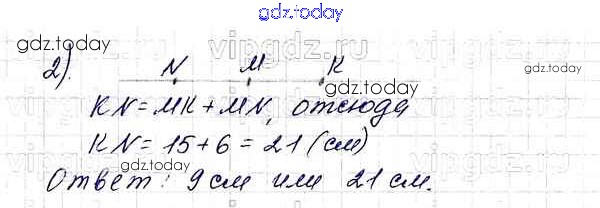 gdz.today
gdz.today
vipgdz.ru
2). N M K
gdz.today
gdz.today
KN = MK + MN, отсюда
KN = 15 + 6 = 21 (см)
gdz.today
Ответ: 9 см или 21 см.